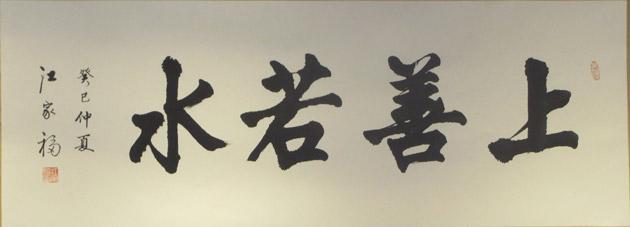 上善若水
癸巳仲夏
江家福